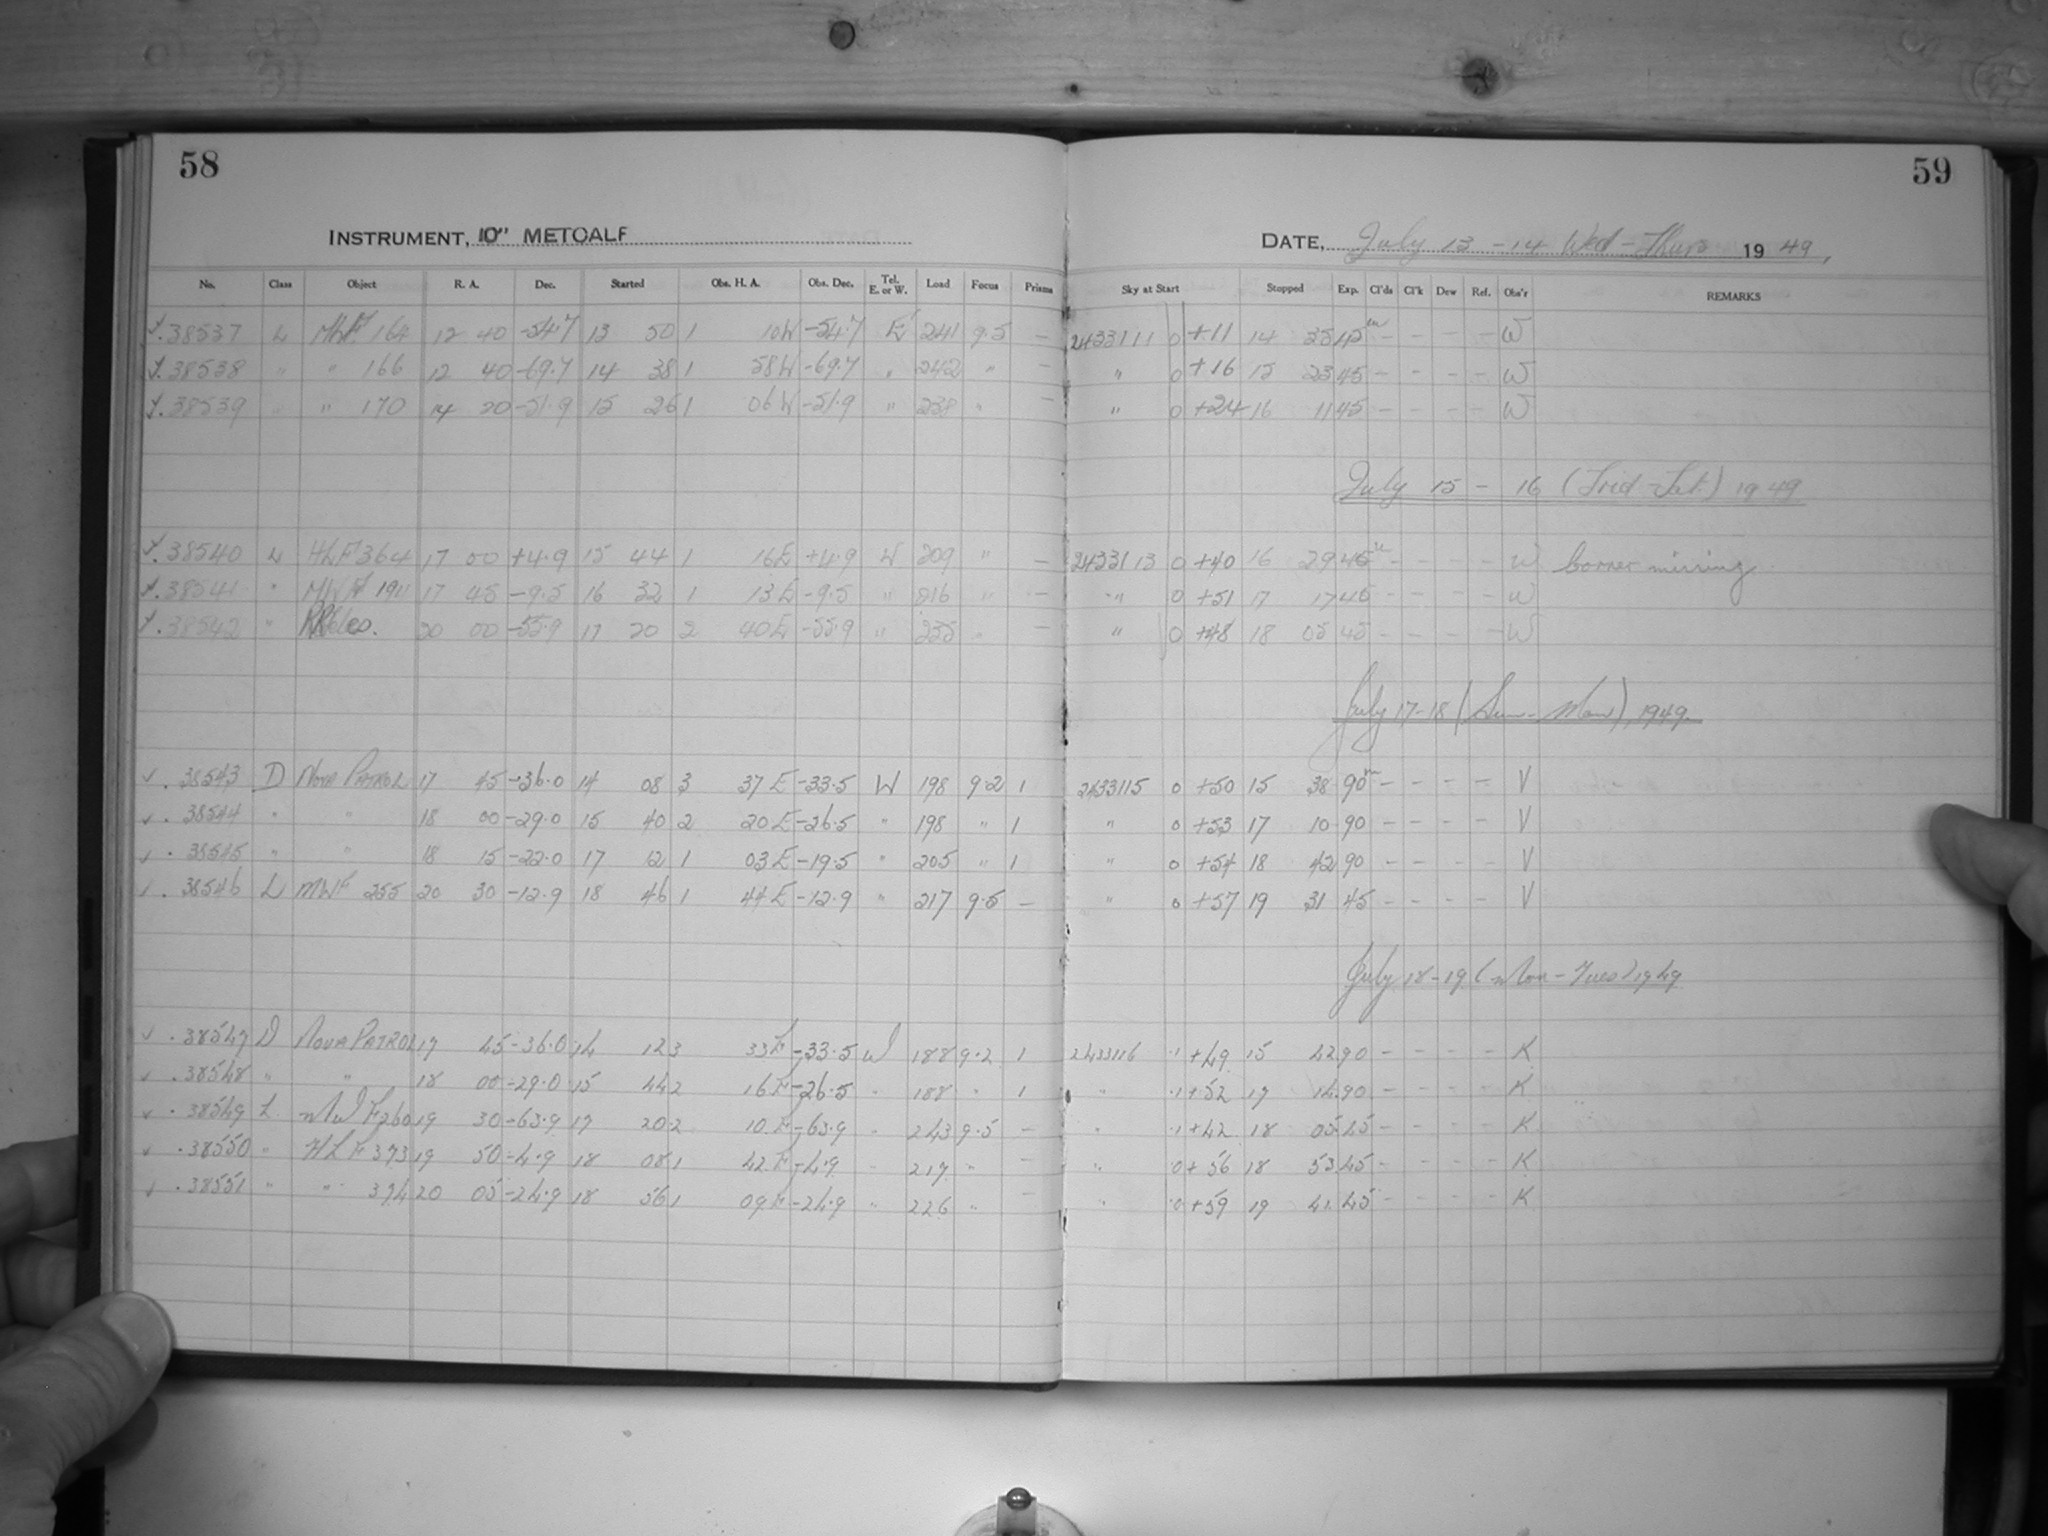 58
INSTRUMENT, 10" METCALF
No. Class Object R. A. Dec. Started Obs. H. A. Obs. Dec. Tel. E. or W. Load Focus Prisms
38537 L MWF 164 12 40 -54.7 13 50 1 10W -54.7 E 241 9.5 —
38538 " " 166 12 40 -69.7 14 38 1 58W -69.7 " 242 " —
38539 " " 170 14 20 -51.9 15 26 1 06W -51.9 " 238 " —
38540 L HLF 364 17 00 +4.9 15 44 1 16E +4.9 W 209 " —
38541 " MWF 17 45 -9.5 16 32 1 13E -9.5 " 216 " —
38542 " 20 00 -55.9 17 20 2 40E -55.9 " 235 " —
38543 D NOVA PATROL 17 45 -36.0 14 08 3 37 E -33.5 W 198 9.2 1
38544 " " 18 00 -29.0 15 40 2 20 E -26.5 " 198 " 1
38545 " " 18 15 -22.0 17 12 1 03 E -19.5 " 205 " 1
38546 L MWF 255 20 30 -12.9 18 46 1 44 E -12.9 " 217 9.5 —
38547 D NOVA PATROL 17 45 -36.0 14 12 3 33 E -33.5 W 188 9.2 1
38548 " " 18 00 -29.0 15 44 2 16 E -26.5 " 188 " 1
38549 L MWF 260 19 30 -63.9 17 20 2 10 E -63.9 " 243 9.5 —
38550 " HLF 373 19 50 -4.9 18 08 1 42 E -4.9 " 217 " —
38551 " " 374 20 05 -24.9 18 56 1 09 E -24.9 " 226 " —
59
DATE, July 13 - 14 Wed - Thurs 19 49,
Sky at Start Stopped Exp. Cl'ds Cl'k Dew Ref. Obs'r REMARKS
2433111 0 +11 14 35 45m - - - - W
" 0 +16 15 23 45 - - - - W
" 0 +24 16 11 45 - - - - W
July 15 - 16 (Frid - Sat.) 1949
2433113 0 +40 16 29 45m - - - - W Corner missing
" 0 +51 17 17 45 - - - - W
" 0 +48 18 05 45 - - - - W
July 17-18 (Sun - Mon), 1949
2433115 0 +50 15 38 90m - - - - V
" 0 +53 17 10 90 - - - - V
" 0 +54 18 42 90 - - - - V
" 0 +57 19 31 45 - - - - V
July 18-19 (Mon - Tues) 1949
2433116 .1 +49 15 42 90 - - - - K
" .1 +52 17 14 90 - - - - K
" .1 +42 18 05 45 - - - - K
" 0 +56 18 53 45 - - - - K
" 0 +59 19 41 45 - - - - K